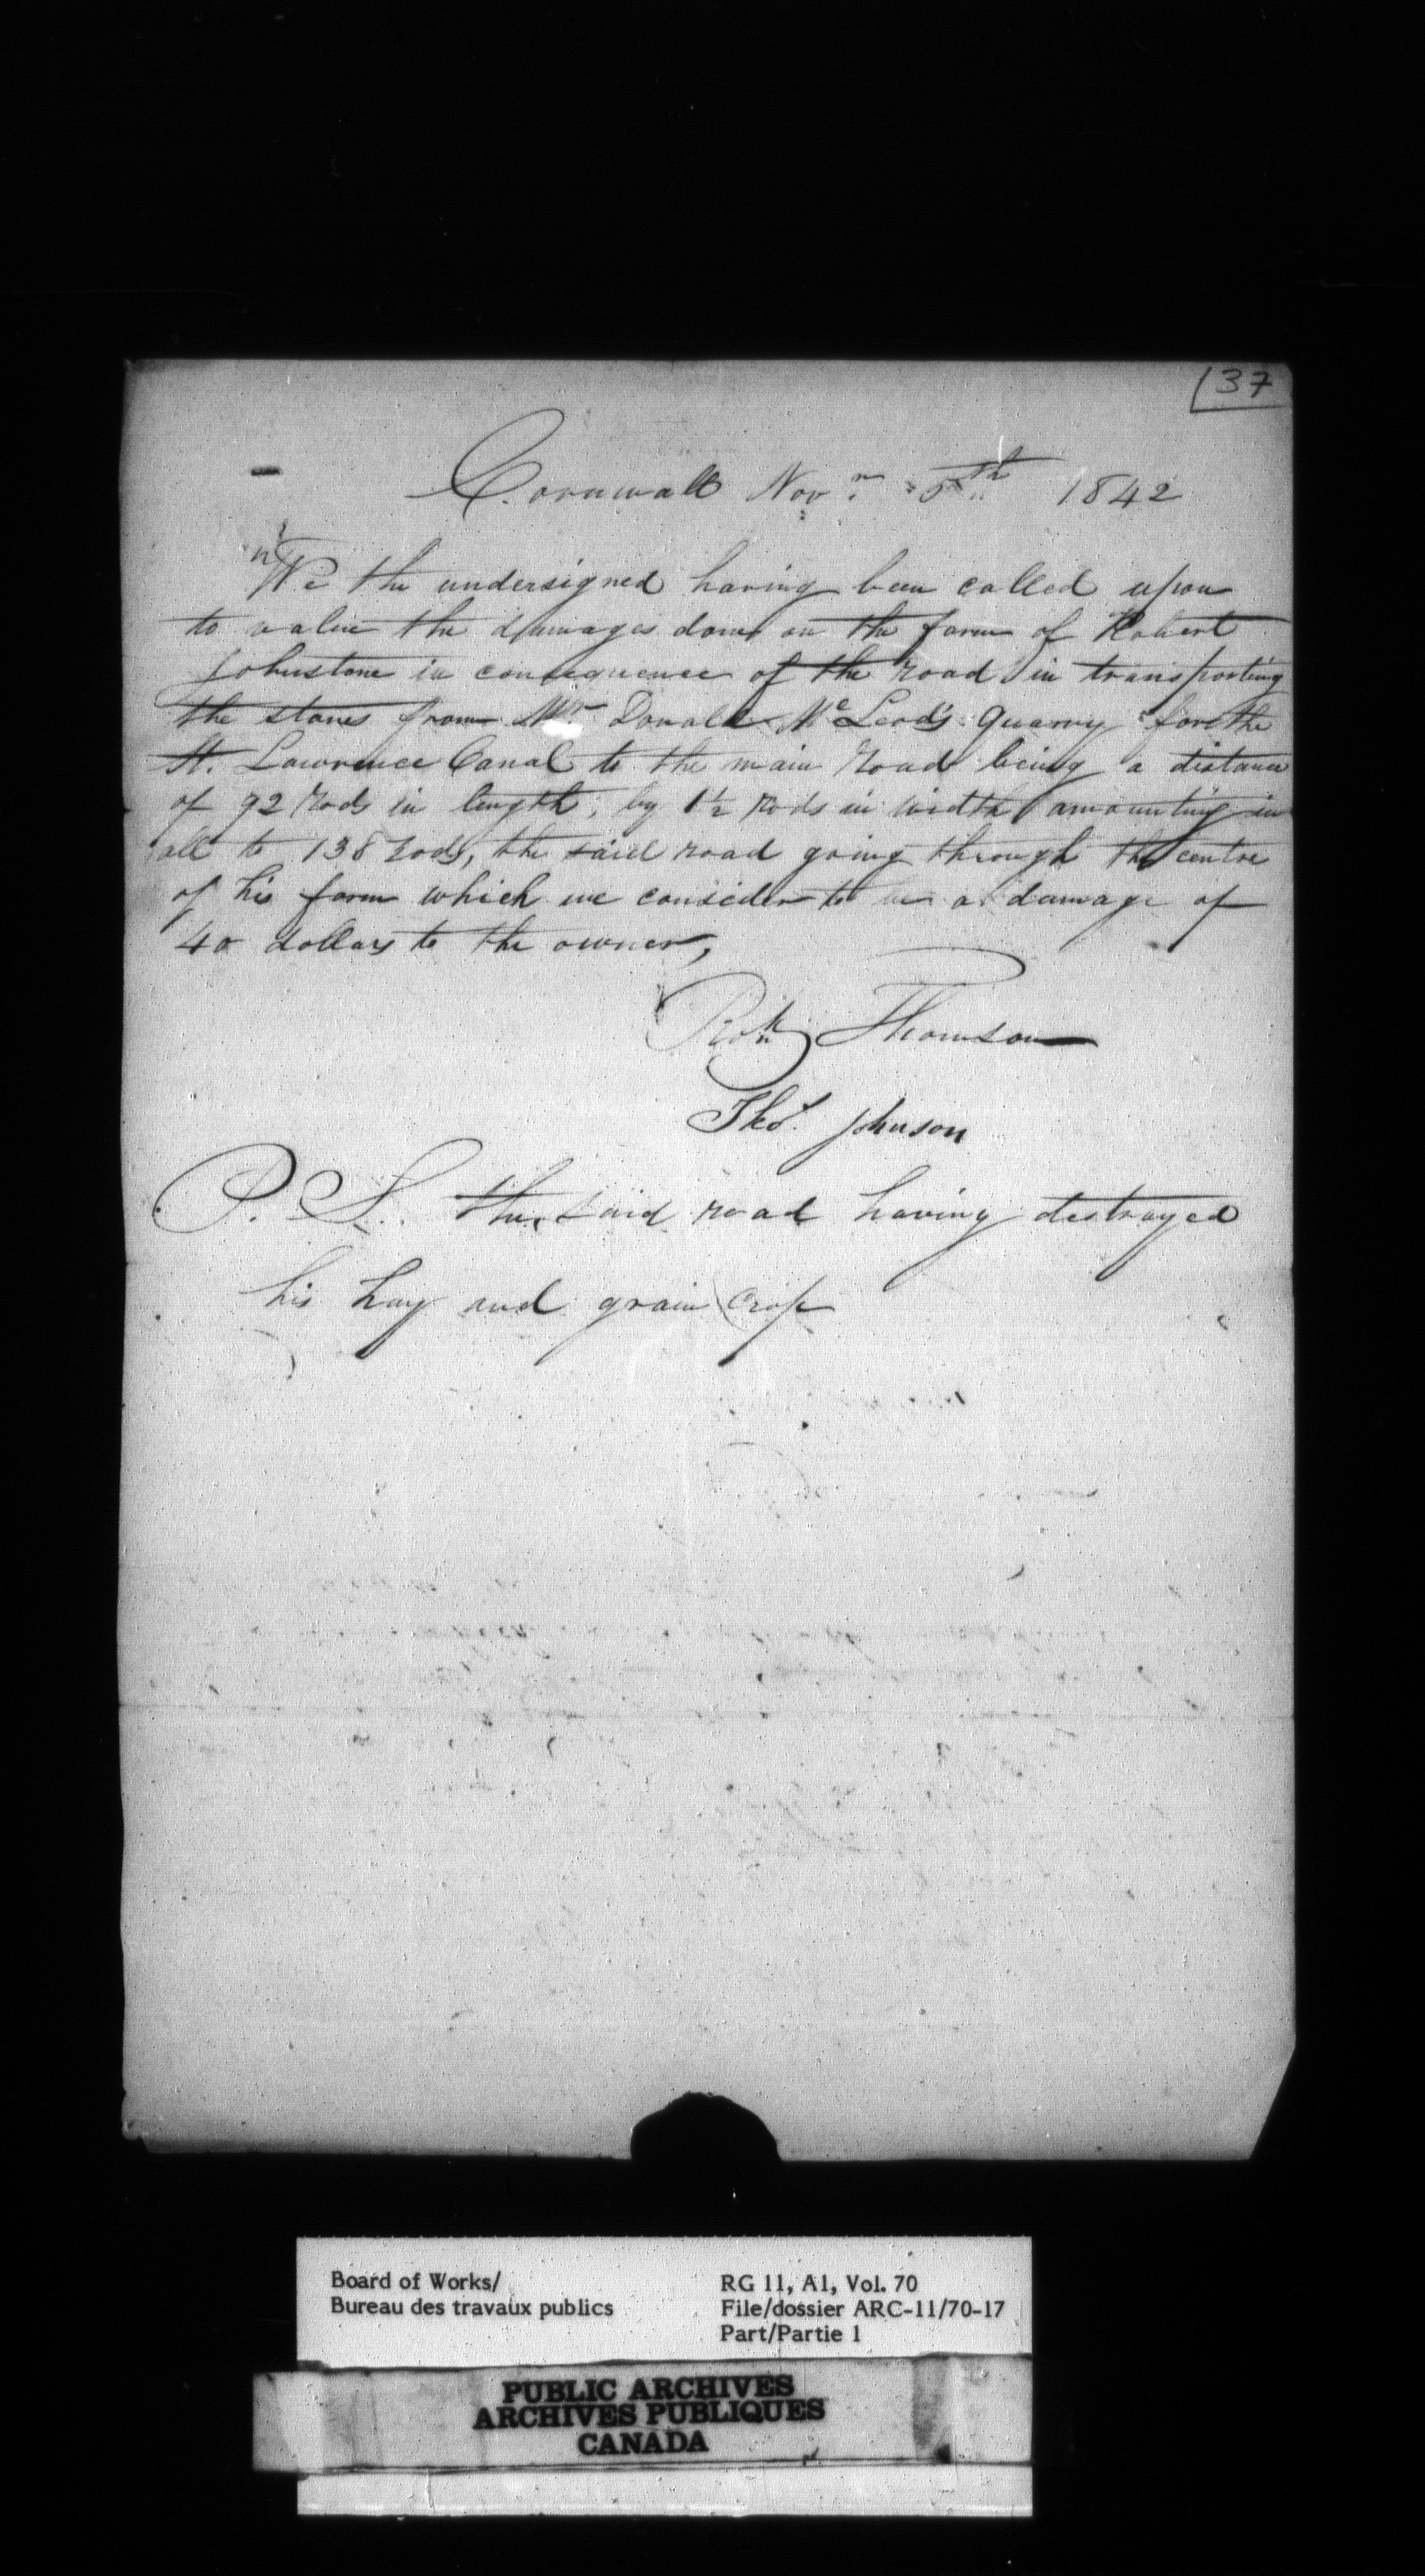 37
Cornwall Novr 5th 1842
We the undersigned having been called upon
to value the damages done on the farm of Robert
Johnstone in consequence of the road in transporting
the stones from Mr Donald McLeod's Quarry for the
St. Lawrence Canal to the main Road being a distance
of 92 Rods in length, by 1½ Rods in width amounting in
all to 138 Rods, the said road going through the centre
of his farm which we consider to be a damage of
40 dollars to the owner,
Robt Thomson
Thos Johnson
P. S. the said road having destroyed
his hay and grain Crop
Board of Works/
Bureau des travaux publics
RG 11, A1, Vol. 70
File/dossier ARC-11/70-17
Part/Partie 1
PUBLIC ARCHIVES
ARCHIVES PUBLIQUES
CANADA